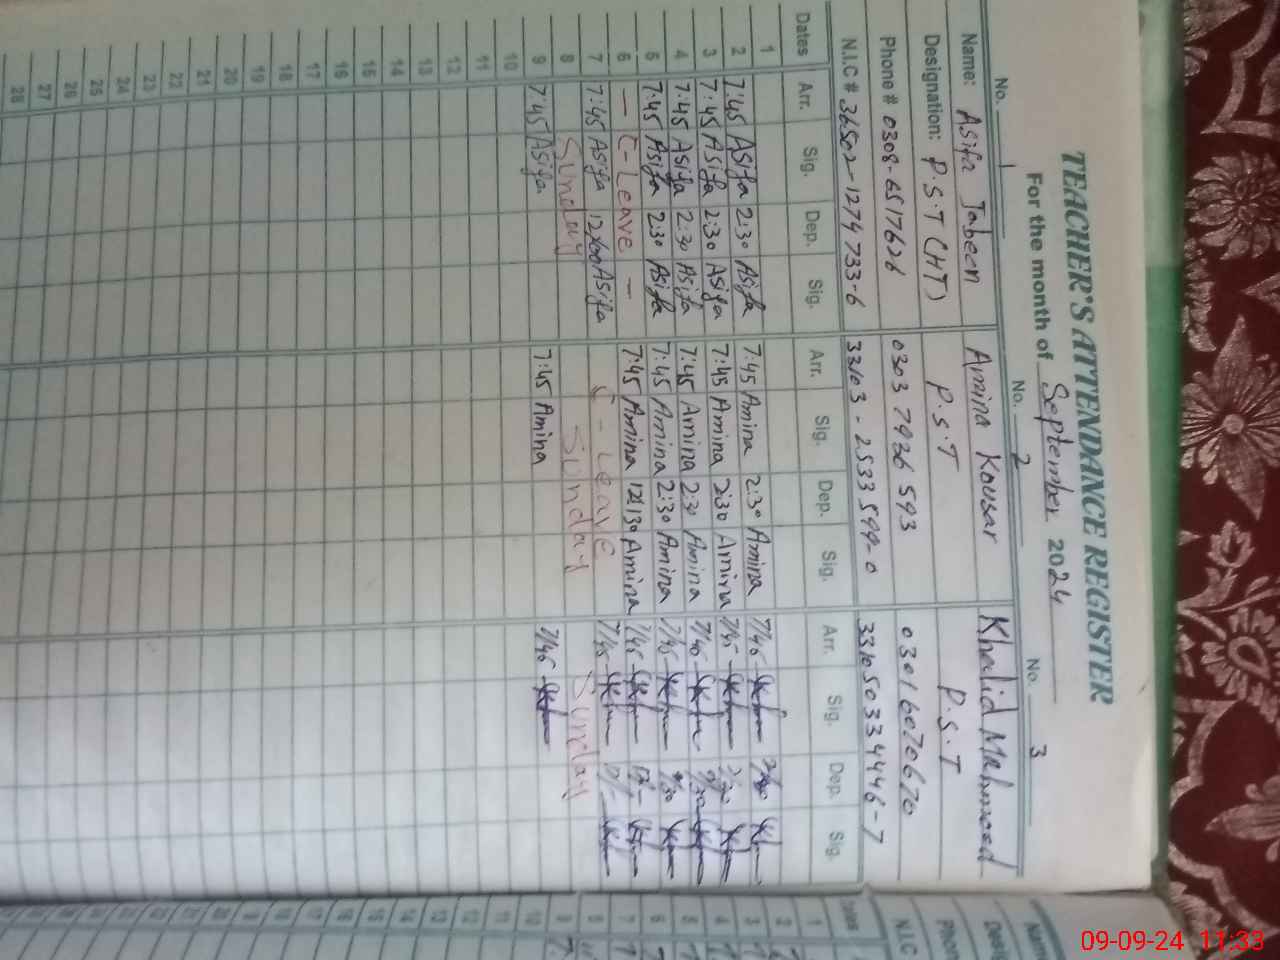 TEACHER'S ATTENDANCE REGISTER
For the month of September 2024
No. 1 No. 2 No. 3
Name: Asifa Jabeen Amina Kousar Khalid Mahmood
Designation: P.S.T (HT) P.S.T P.S.T
Phone # 0308-6517626 0303 7936593 03016070670
N.I.C # 36502-1274733-6 33103-2533599-0 33105033 4446-7
Dates Arr. Sig. Dep. Sig. Arr. Sig. Dep. Sig. Arr. Sig. Dep. Sig.
1
2 7:45 Asifa 2:30 Asifa 7:45 Amina 2:30 Amina 7/45
3 7:45 Asifa 2:30 Asifa 7:45 Amina 2:30 Amina 7/45
4 7:45 Asifa 2:30 Asifa 7:45 Amina 2:30 Amina 7/45
5 7:45 Asifa 2:30 Asifa 7:45 Amina 2:30 Amina 7/45
6 — C-Leave — 7:45 Amina 12:30 Amina 7/45
7 7:45 Asifa Asifa C-Leave 7/45
8 Sunday Sunday Sunday
9 7:45 Asifa 7:45 Amina 7/45
10
11
12
13
14
15
16
17
18
19
20
21
22
23
24
25
26
27
28
09-09-24 11:33